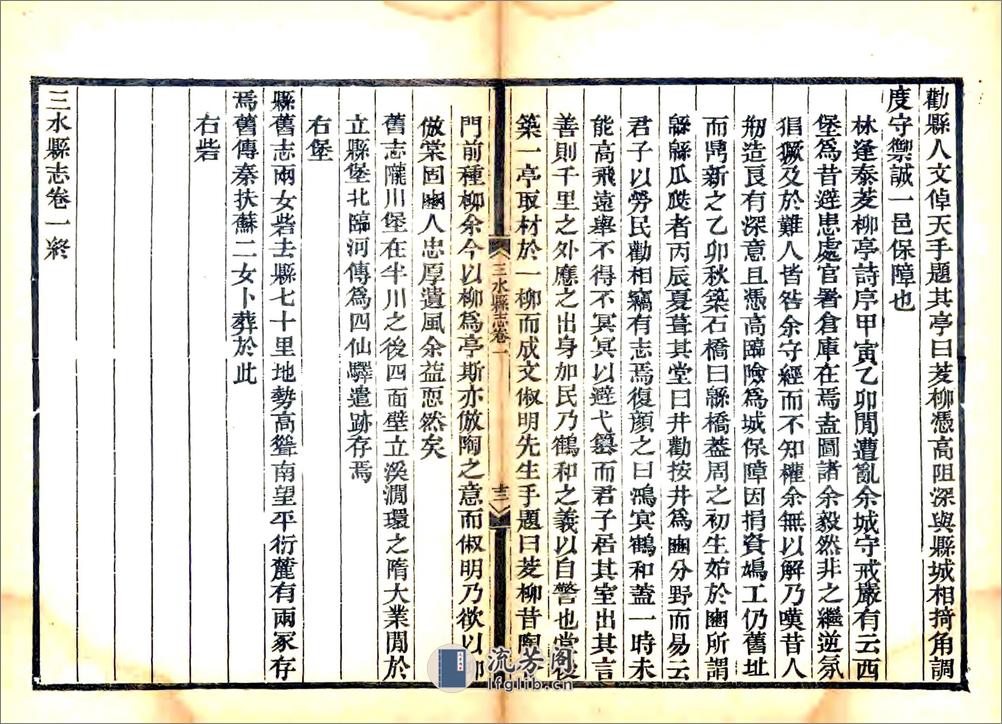 勸縣人文倬天手題其亭曰菱柳憑高阻深與縣城相掎角調
度守禦誠一邑保障也
林逢泰菱柳亭詩序甲寅乙卯閒遭亂余城守戒嚴有云西
堡爲昔避患處官署倉庫在焉盍圖諸余毅然非之繼逆氛
猖獗及於難人皆咎余守經而不知權余無以解乃嘆昔人
剏造良有深意且憑高臨險爲城保障因捐資鳩工仍舊址
而鼎新之乙卯秋築石橋曰緜橋葢周之初生始於豳所謂
緜緜瓜瓞者丙辰夏葺其堂曰井勸按井爲豳分野而易云
君子以勞民勸相竊有志焉復顏之曰鴻冥鶴和葢一時未
能高飛遠舉不得不冥冥以避弋篡而君子居其室出其言
善則千里之外應之出身加民乃鶴和之義以自警也堂後
築一亭取材於一柳而成文俶明先生手題曰菱柳昔陶
門前種柳余今以柳爲亭斯亦倣陶之意而俶明乃欲以柳
倣棠固豳人忠厚遺風余益恧然矣
舊志隴川堡在半川之後四面壁立溪澗環之隋大業閒於
立縣堡北臨河傳爲四仙驛遺跡存焉
右堡
縣舊志兩女砦去縣七十里地勢高聳南望平衍麓有兩冢存
焉舊傳秦扶蘇二女卜葬於此
右砦
三水縣志卷一終
三水縣志卷一
十二
流芳閣
lfglib.cn